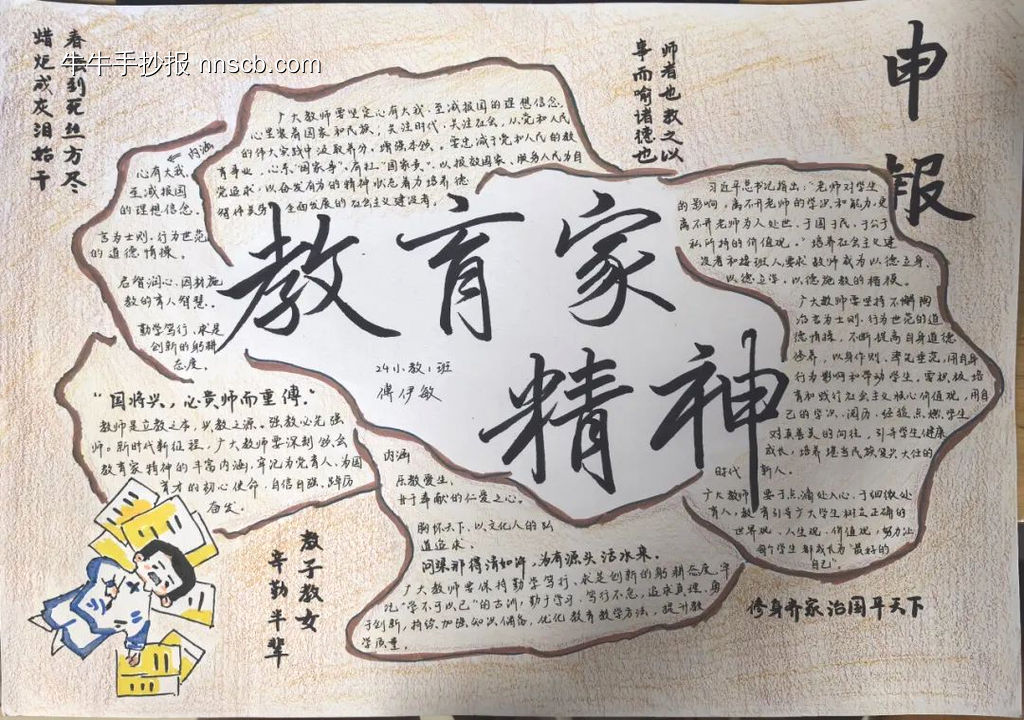 春蚕到死丝方尽
蜡炬成灰泪始干
牛牛手抄报 nnscb.com
师者也教之以
事而喻诸德也
申报
广大教师要坚定心有大我、至诚报国的理想信念,
心里装着国家和民族,关注时代、关注社会,从党和人民
的伟大实践中汲取养分,增强本领。要忠诚于党和人民的教
育事业,心系"国家事",肩扛"国家责",以报效国家、服务人民为自
党追求,以奋发有为的精神状态着力培养德
智体美劳全面发展的社会主义建设者。
←内涵
心有大我、
至诚报国
的理想信念。
言为士则、行为世范
的道德情操。
启智润心、因材施
教的育人智慧。
勤学笃行、求是
创新的躬耕
态度。
教育家
精神
24小教1班
傅伊敏
习近平总书记指出:"老师对学生
的影响,离不开老师的学识和能力,更
离不开老师为人处世、于国于民、于公于
私所持的价值观。"培养社会主义建
设者和接班人要求教师成为以德立身、
以德立学、以德施教的楷模。
广大教师要坚持不懈陶
冶言为士则、行为世范的道
德情操,不断提高自身道德
修养,以身作则、率先垂范,用自身
行为影响和带动学生。要积极培
育和践行社会主义核心价值观,用自
己的学识、阅历、经验点燃学生
对真善美的向往,引导学生健康
成长,培养堪当民族复兴大任的
时代新人。
广大教师要于点滴处入心、于细微处
育人,教育引导广大学生树立正确的
世界观、人生观、价值观,努力让
每个学生都成长为"最好的
自己"。
"国将兴,必贵师而重傅。"
教师是立教之本、兴教之源。强教必先强
师。新时代新征程,广大教师要深刻领会
教育家精神的丰富内涵,牢记为党育人、为国
育才的初心使命,自信自强、踔厉
奋发。
内涵
乐教爱生、
甘于奉献的仁爱之心。
胸怀天下、以文化人的弘
道追求。
问渠那得清如许,为有源头活水来。
广大教师要保持勤学笃行、求是创新的躬耕态度,牢
记"学不可以已"的古训,勤于学习、笃行不怠,追求真理、勇
于创新,持续加强知识储备,优化教育教学方法,提升教
学质量。
教子教女
辛勤半辈
修身齐家治国平天下